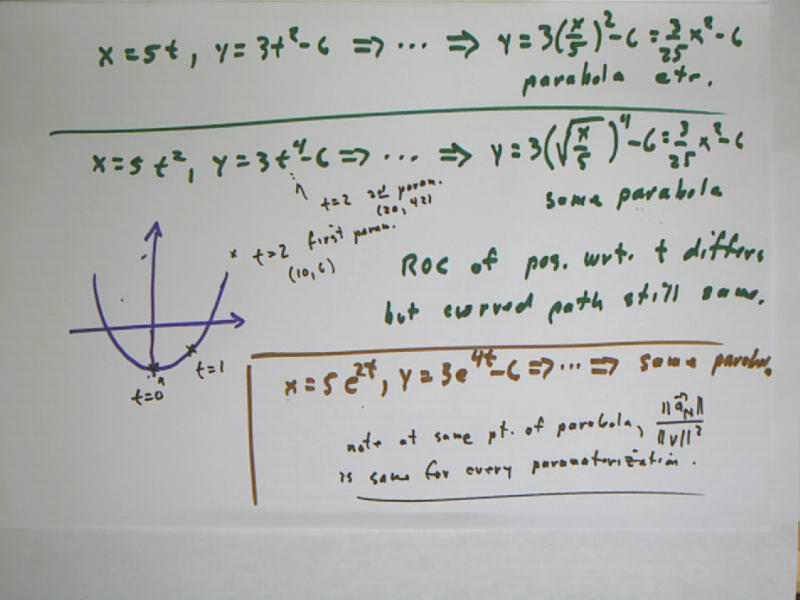 x = 5t, y = 3t² - 6 => ... => y = 3(x/5)² - 6 = 3/25 x² - 6
parabola etc.
x = 5t², y = 3t⁴ - 6 => ... => y = 3(√(x/5))⁴ - 6 = 3/25 x² - 6
same parabola
t=2 2nd param.
(20, 42)
t=2 first param.
(10, 6)
ROC of pos. wrt. t differs
but curved path still same.
t=1
t=0
x = 5e^{2t}, y = 3e^{4t} - 6 => ... => same parabo
note at same pt. of parabola, ||a_N|| / ||v||²
is same for every parameterization.